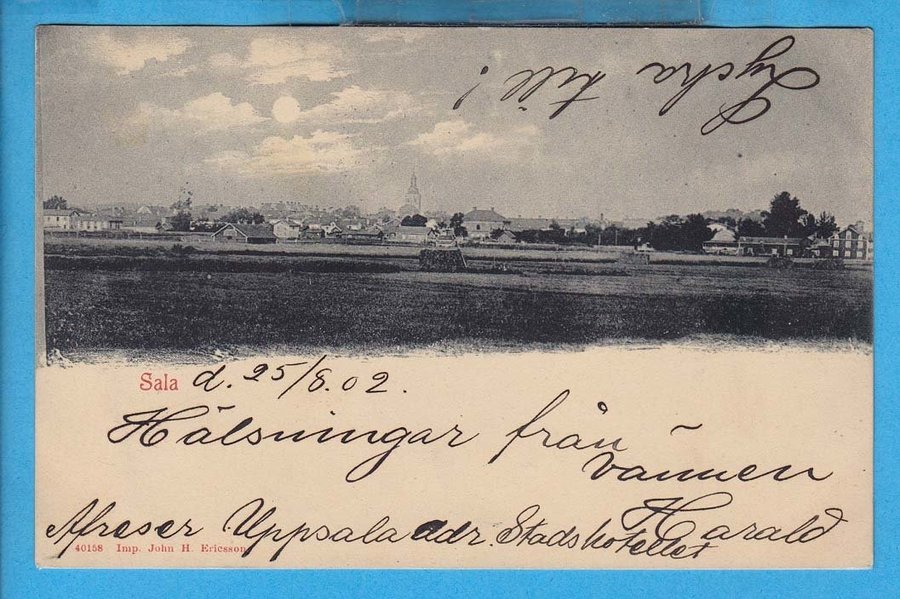 Lycka till!
Sala d. 25/8.02.
Hälsningar från
vännen
Harald
Afreser Uppsala adr. Stadshotellet
40158 Imp. John H. Ericsson